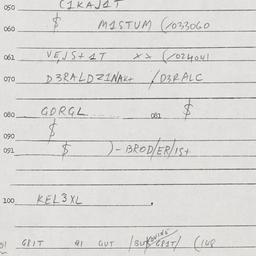 050 C1KAJ1T
$
060 M1STUM (/033060
061 VEJS+1T xx (/024041
070 D3RALDZ1NAK+ /D3RALC
080 GDRGL 081 $
$
090
091 $ )-BROD/ER/1S+
100 KEL3XL .
G81T 91 GUT